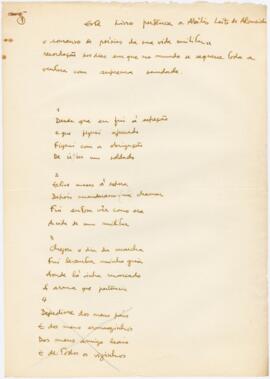 Este Livro pertence a Abílio Leite de Almeida
o romance de poésias da sua vida militar e
recordação dos dias em que no mundo se sequeue toda a
ventura com suprema saudade.
1
Desde que eu fui á espeção
e que fiquei apurado
Fiquei com a obrigação
De ir ser um soldado
2
Estive meses á espera
Depois mandaram-me chamar
Fui então vêr como era
a vida de um militar
3
Chegou o dia da marcha
Fui levantar minha guia
donde lá vinha marcado
A arma que pertencia
4
Despedime dos meus pais
E dos meus irmãozinhos
Dos meus amigos leais
E de Todos os vizinhos